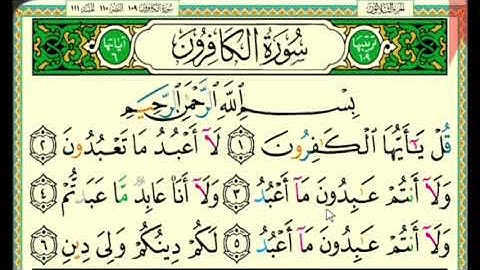 سورة الكافرون ١٠٩ النصر ١١٠ المسد ١١١ الجزء الثلاثون
ترتيبها ١٠٩ سُورَةُ الْكَافِرُونَ آيَاتُهَا ٦
بِسْمِ اللَّهِ الرَّحْمَٰنِ الرَّحِيمِ
قُلْ يَٰٓأَيُّهَا ٱلْكَٰفِرُونَ ١ لَآ أَعْبُدُ مَا تَعْبُدُونَ ٢
وَلَآ أَنتُمْ عَٰبِدُونَ مَآ أَعْبُدُ ٣ وَلَآ أَنَا۠ عَابِدٌ مَّا عَبَدتُّمْ ٤
وَلَآ أَنتُمْ عَٰبِدُونَ مَآ أَعْبُدُ ٥ لَكُمْ دِينُكُمْ وَلِىَ دِينِ ٦